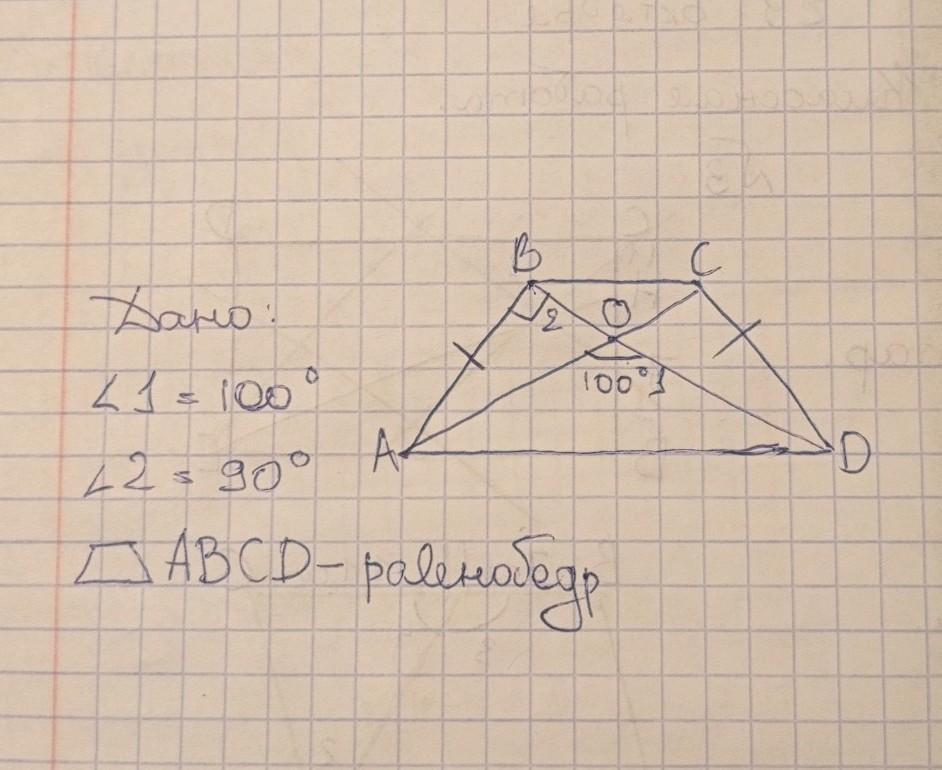 Дано:
∠1 = 100°
∠2 = 90°
ABCD – равнобедр
B
C
2
O
100° 1
A
D